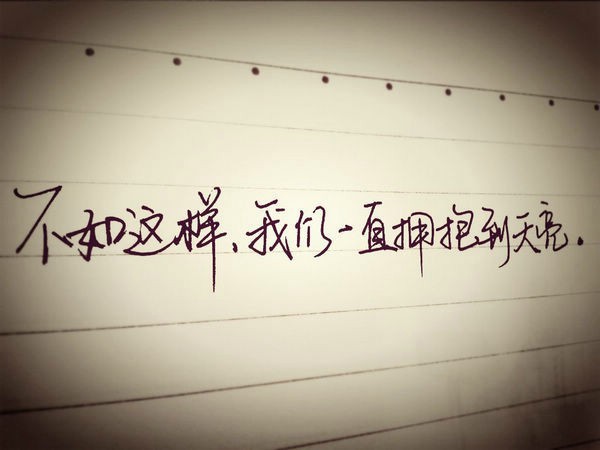 不如这样,我们一直拥抱到天亮.